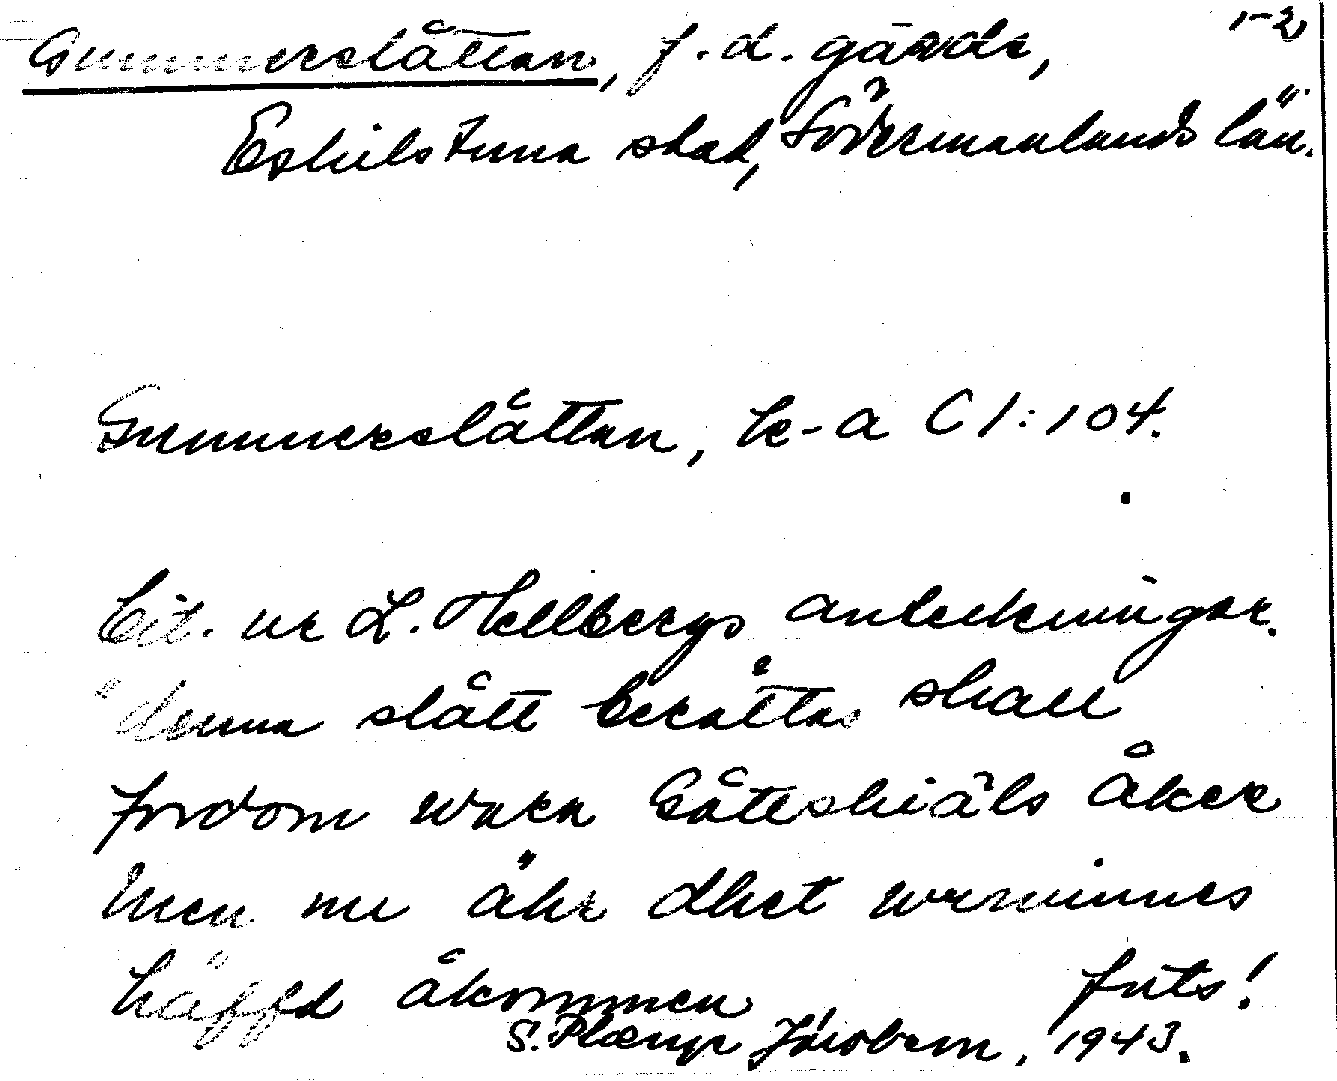 1-2
Gunnerslåttan, f.d. gärde,
Eskilstuna stad, Södermanlands län.
Gunnerslåttan, k-a C 1:104.
Cit. ur L. Hellbergs anteckningar.
"denna slått berättas skall
fordom wara Båteskiäls åker
men nu ähr dhet urminnes
häffd åkommen forts!
S. Jacobson, 1943.